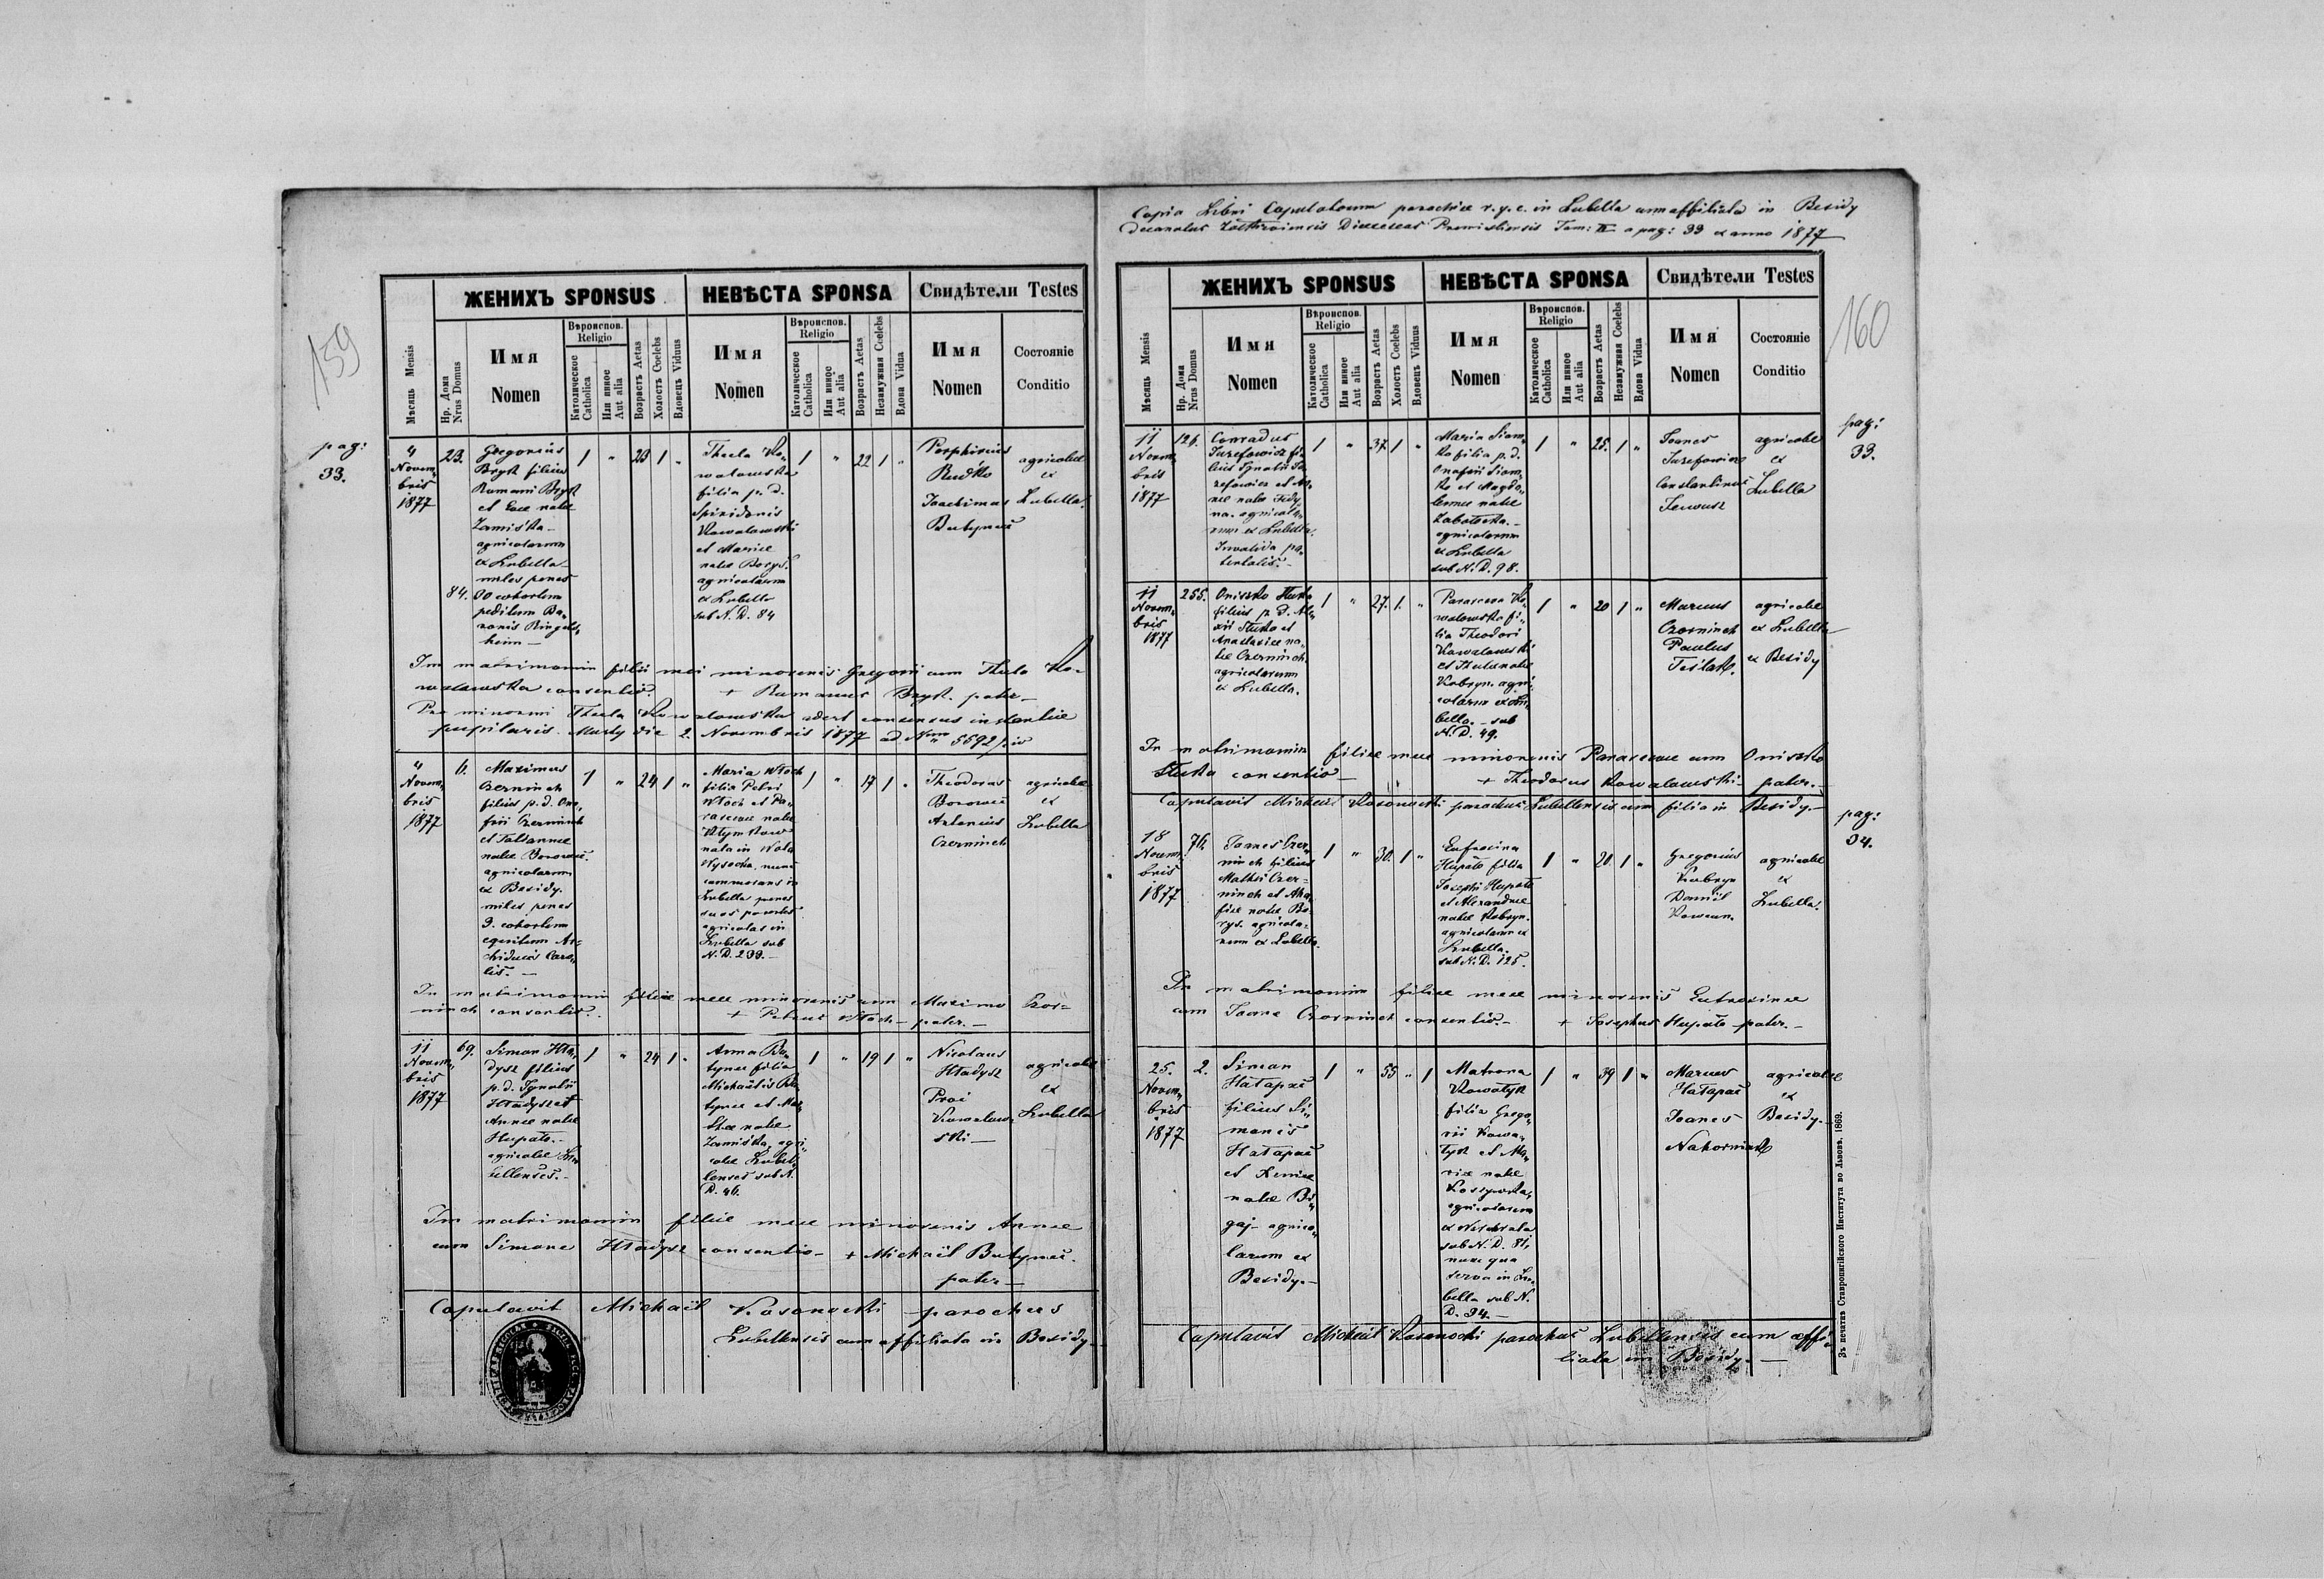 159
ЖЕНИХЪ SPONSUS НЕВѢСТА SPONSA Свидѣтели Testes
Мѣсяць Mensis
Нр. Дома Nrus Domus
Имя Nomen
Вѣроиспов. Religio
Католическое Catholica
Или иное Aut alia
Возрастъ Aetas
Холостъ Coelebs
Вдовецъ Viduus
Имя Nomen
Вѣроиспов. Religio
Католическое Catholica
Или иное Aut alia
Возрастъ Aetas
Незамужная Coelebs
Вдова Vidua
Имя Nomen
Состояніе Conditio
pag:
33.
4
Novem„
bris
1877
23.
84.
Gregorius
Bryk filius
Romani Bryk
et Evae natae
Zamiska
agricolarum
ex Lubella
miles penes
80 cohortem
peditum Ba„
ronis Ringels„
heim —
1 " 23 1 "
Thecla Ko„
walowska
filia p. d.
Spiridonis
Kowalowski
et Mariae
natae Borys.
agricolarum
ex Lubella
sub N. D. 84
1 " 22 1 "
Porphirius
Rudko
Joachimus
Butynec
agricolae
ex
Lubella.
In matrimonium filii mei minorenis Gregorii cum Thecla Ko-
walowska consentio. + Romanus Bryk. pater —
Pro minorenni Thecla Kowalowska adest consensus instantiae
pupilaris Mosty die 2. Novembris 1877 ad Nrum 5592/
4
Novem„
bris
1877
6.
Maximus
Czerninch
filius p. d. Ono„
frii Czerninch
et Tatiannae
natae Borowec.
agricolarum
ex Besidy.
miles penes
3. cohortem
equitum Ar=
chiducis Caro„
lis. —
1 " 24 1 "
Maria Włoch
filia Petri
Włoch et Pa„
rascevae natae
Klymkow
nata in Wola
Wysocka, nunc
commorans in
Lubella penes
suos parentes
agricolas in
Lubella sub
N. D. 239. —
1 " 17 1 "
Theodorus
Borowec
Antonius
Czerninch
agricolae
ex
Lubella
In matrimonium filiae meae minorenis cum Maximo Czer=
ninch consentio. + Petrus Włoch — pater. —
11
Novem„
bris
1877
69.
Simon Hła„
dysz filius
p. d. Ignatii
Hładysz et
Annae natae
Hupało. —
agricolae Lu„
bellenses. —
1 " 24 1 "
Anna Bu„
tynec filia
Michaëlis Bu„
tynec et
natae
Zamiska, agri„
colae Lubel„
lenses sub N.
D. 46.
1 " 19 1 "
Nicolaus
Hładysz
Kowalow„
ski —
agricolae
ex
Lubella
In matrimonium filiae meae minorenis Annae
cum Simone Hładysz consentio — + Michaël Butynec.
pater —
Copulavit Michaël Kosonocki parochus
Lubellensis cum affiliata in Besidy. —
Copia Libri Copulatorum parochiae r. g. c. in Lubella cum affiliata in Besidy
decanatus Zołkiewiensis Dieceseos Premisliensis Tom: II a pag: 33 ex anno 1877
160
ЖЕНИХЪ SPONSUS НЕВѢСТА SPONSA Свидѣтели Testes
Мѣсяць Mensis
Нр. Дома Nrus Domus
Имя Nomen
Вѣроиспов. Religio
Католическое Catholica
Или иное Aut alia
Возрастъ Aetas
Холостъ Coelebs
Вдовецъ Viduus
Имя Nomen
Вѣроиспов. Religio
Католическое Catholica
Или иное Aut alia
Возрастъ Aetas
Незамужная Coelebs
Вдова Vidua
Имя Nomen
Состояніе Conditio
pag:
33.
11
Novem„
bris
1877
126.
Conradus
Juzefowicz fi„
lius Ignatii Ju„
zefowicz et An„
nae natae Fedy
na. agricola„
rum ex Lubella.
Invalida pa„
tentalis. —
1 " 37. 1 "
Maria Siom„
ko filia p. d.
Onofrii Siom„
ko et Magda„
lenae natae
Zabołocka. —
agricolarum
ex Lubella
sub N. D. 98.
1 " 25. 1 "
Joanes
Juzefowicz
Constantinus
agricolae
ex
Lubella
11
Novem„
bris
1877
255.
Oniszko Stuka
filius p. d. Ale„
xii Stuka et
Anastasiae na„
tae Czerninch.
agricolarum
ex Lubella.
1 " 27. 1. "
Parasceva Ko„
walowska fi„
lia Theodori
Kowalowski
et natae
Kobryn. agri„
colarum ex Lu„
bella. — sub
N. D. 49.
1 " 20 1 "
Marcus
Czerninch
Paulus
Teślak.
agricolae
ex Lubella
ex Besidy
In matrimonium filiae meae minorenis Parascevae cum Oniszko
Stuka consentio — + Theodorus Kowalowski — pater. —
Copulavit Michaël Kosonocki parochus Lubellensis cum filia in Besidy. —
pag:
34.
18
Novem„
bris
1877
76.
Joanes Czer„
ninch filius
Mathei Czer=
ninch et Aha„
fiae natae Bo„
rys. agricola„
rum ex Lubella.
1 " 30. 1 "
Eufrosina
Hupało filia
Josephi Hupało
et Alexandrae
natae Kobryn.
agricolarum ex
Lubella.
sub N. D. 125.
1 " 20. 1 "
Gregorius
Kobryn
Daniil
agricolae
ex
Lubella.
In matrimonium filiae meae minorenis Eufrosinae
cum Joane Czerninch consentio. — + Josephus Hupało — pater. —
25.
Novem„
bris
1877
2.
Simon
Hałapac
filius Si„
monis
Hałapac
et Xeniae
natae Bi„
gaj — agrico„
larum ex
Besidy. —
1 " 55 " 1
Matrona
Kowałyk
filia Grego„
rii Kowa„
łyk et Ma„
riae natae
agricolarum
sub N. D. 81,
nunc qua
serva in Lu„
bella sub N.
D. 34. —
1 " 39 1 "
Marcus
Hałapac
Joanes
Nakorniak
agricolae
ex
Besidy. —
Copulavit Michaël Kosonocki parochus Lubellensis cum affi„
liata in Besidy. —
Зъ печатнѣ Ставропигійского Института во Львовѣ. 1869.